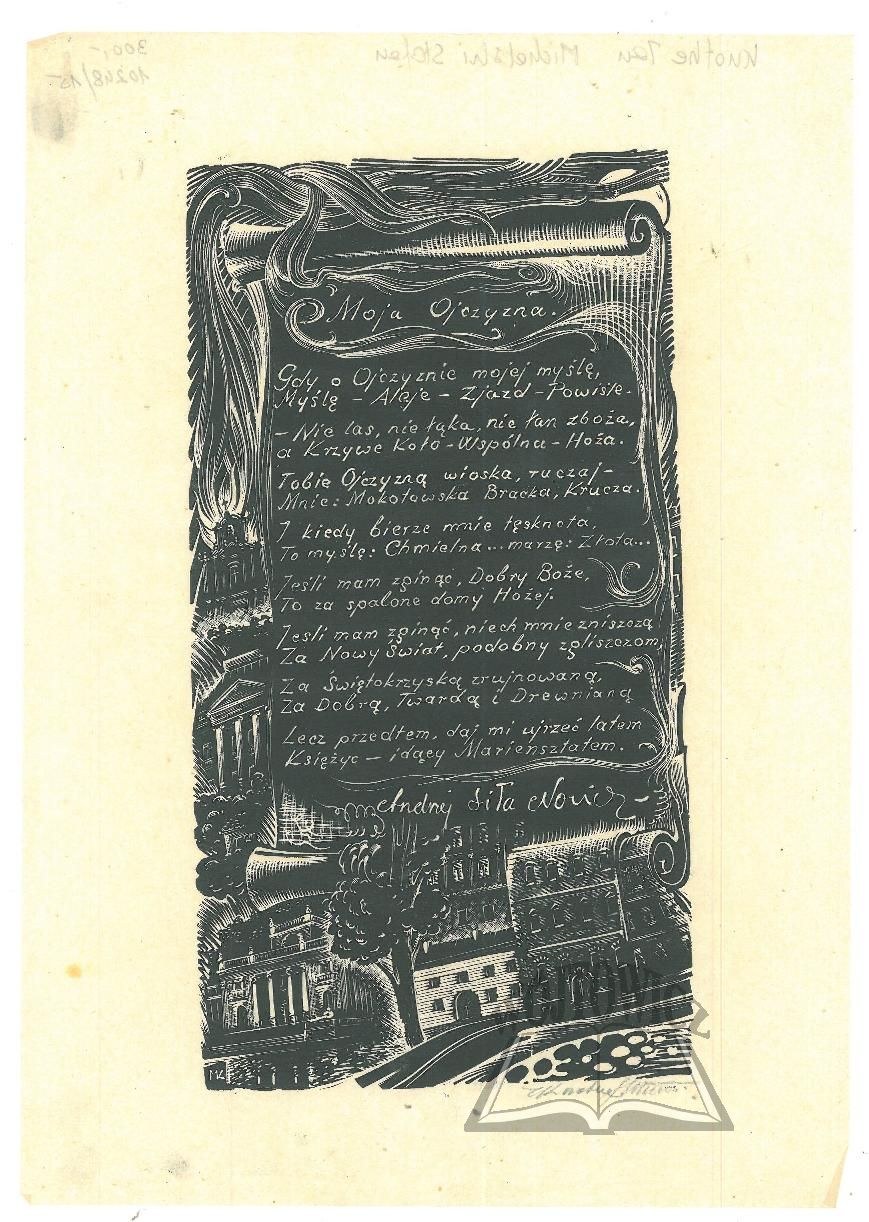 Knothe Jan Michalski Stefan
300,-
10248/15
Moja Ojczyzna.
Gdy o Ojczyznie mojej myślę,
Myślę - Aleje - Zjazd - Powiśle -
- Nie las, nie łąka, nie łan zboża,
a Krzywe Koło - Wspólna - Hoża.
Tobie Ojczyzną wioska, ruczaj -
Mnie: Mokotowska Bracka, Krucza.
I kiedy bierze mnie tęsknota,
To myślę: Chmielna... marzę: Złota...
Jeśli mam zginąć, Dobry Boże,
To za spalone domy Hożej.
Jeśli mam zginąć, niech mnie zniszczą
Za Nowy Świat, podobny zgliszczom,
Za Świętokrzyską zrujnowaną,
Za Dobrą, Twardą i Drewnianą
Lecz przedtem, daj mi ujrzeć latem
Księżyc - idący Mariensztatem.
Andrzej Siła Nowicz -
MK